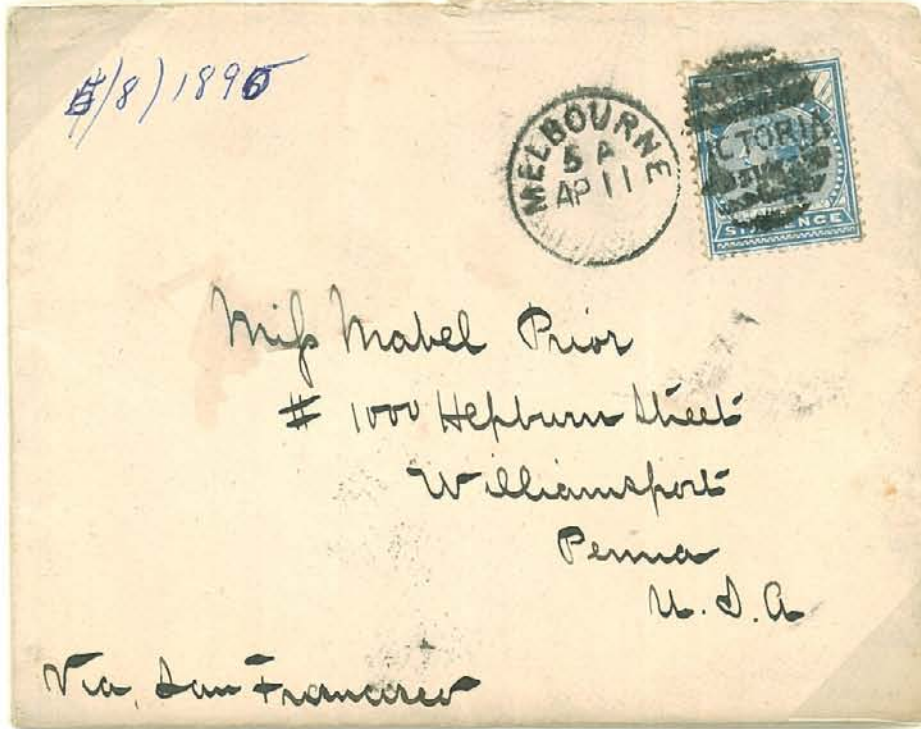 /8/1895
MELBOURNE
5 A
AP 11
VICTORIA
SIXPENCE
Miss Mabel Prior
# 1000 Hepburn Street
Williamsport
Penna
U.S.A
Via, San Francisco